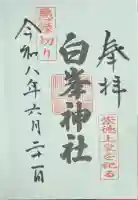 奉拝
崇徳上皇を祀る
白峯神社
悪縁切り
令和八年六月二十一日